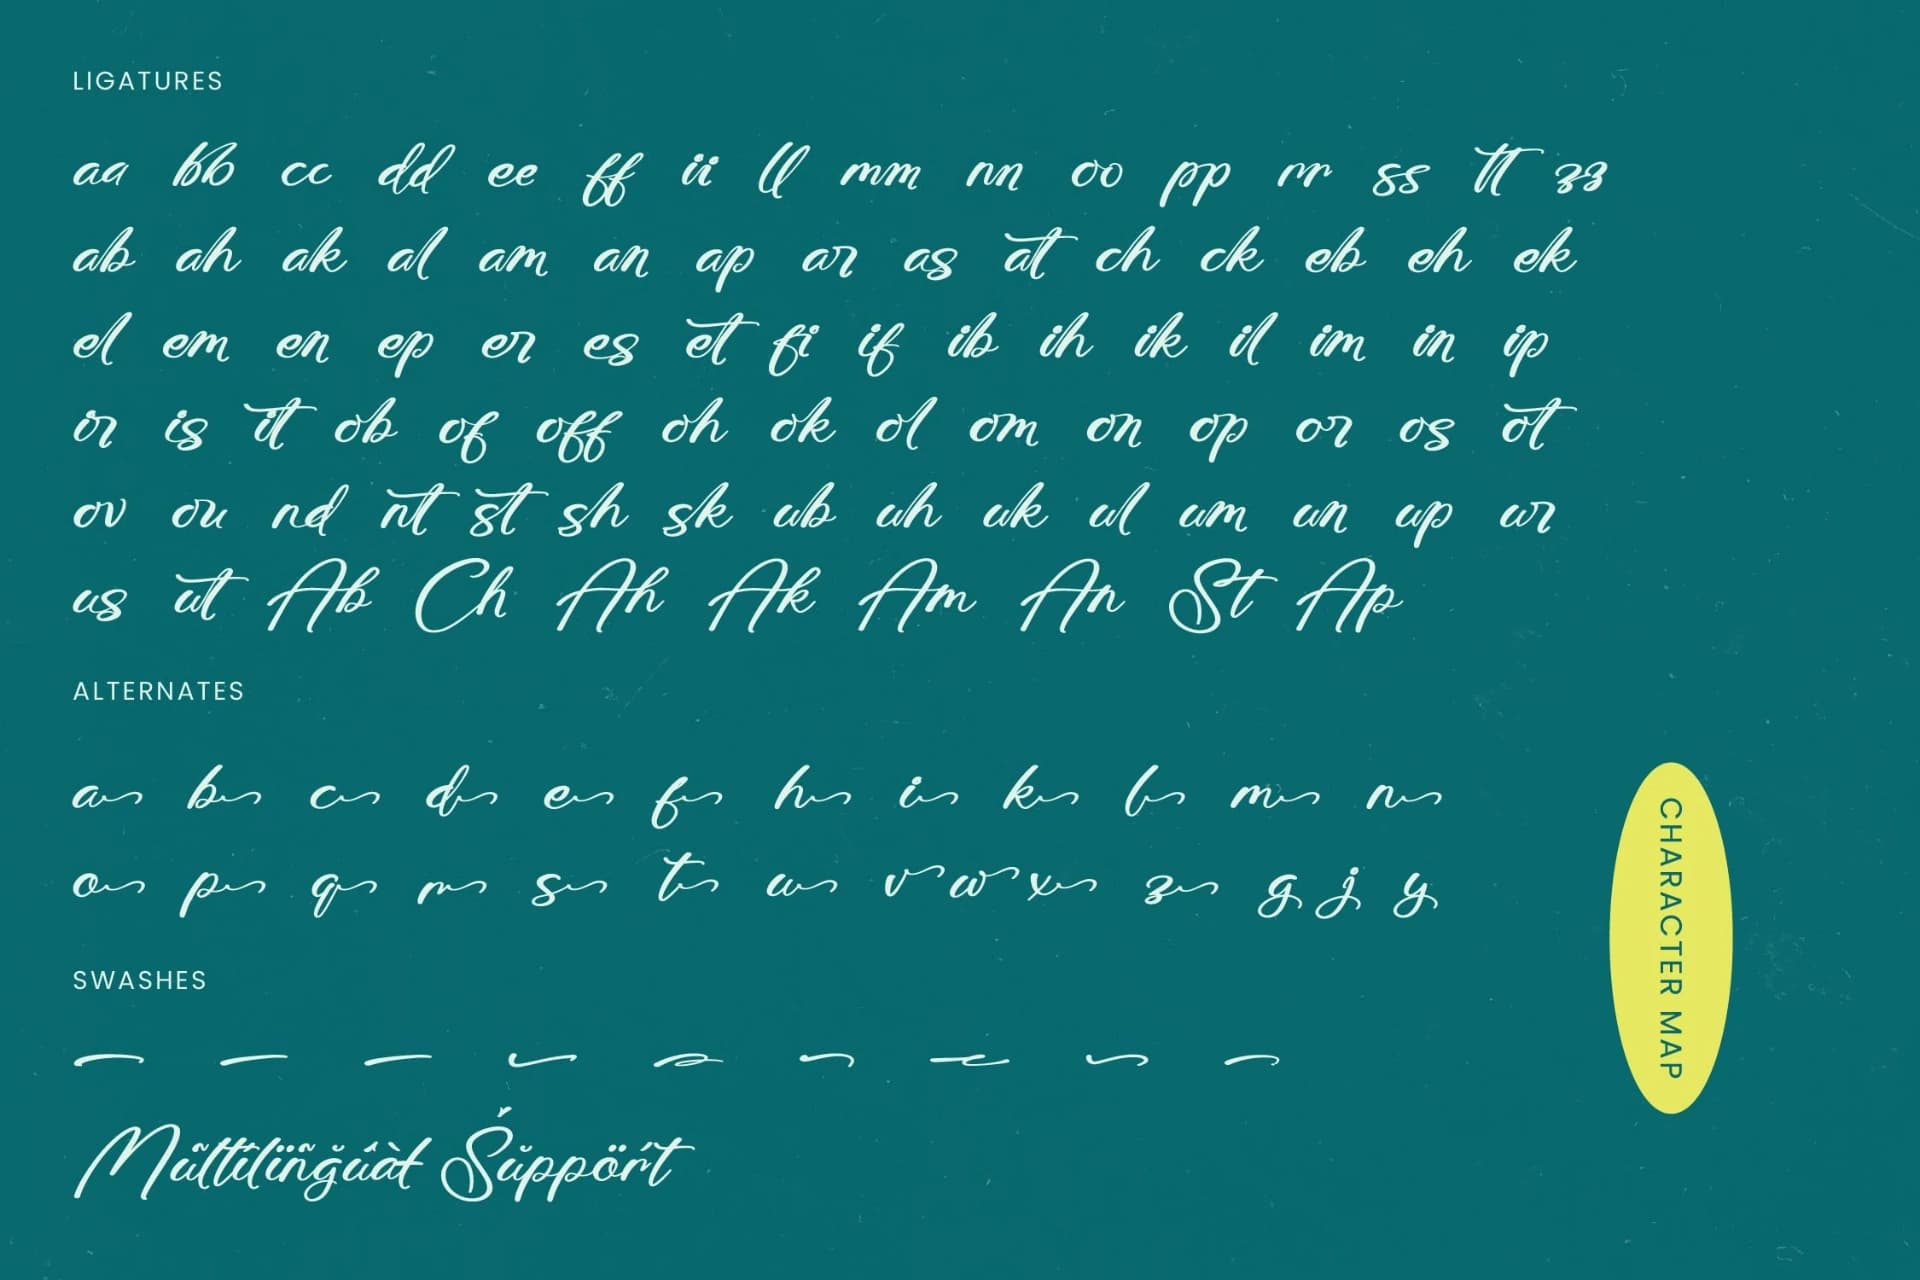 LIGATURES
aa bb cc dd ee ff ii ll mm nn oo pp rr ss tt zz
ab ah ak al am an ap ar as at ch ck eb eh ek
el em en ep er es et fi if ib ih ik il im in ip
ir is it ob of off oh ok ol om on op or os ot
ov ou nd nt st sh sk ub uh uk ul um un up ur
us ut Ab Ch Ah Ak Am An St Ap
ALTERNATES
a b c d e f h i k l m n
o p q r s t u v w x z g j y
CHARACTER MAP
SWASHES